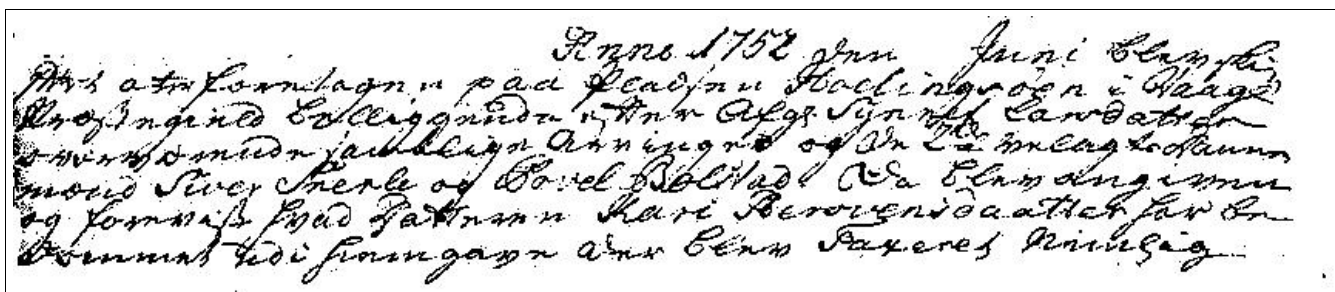 Anno 1752 den Juni blev ski
ftet atter foretagen paa Pladsen Kollingsøen i Vaage
Præstegield beliggende efter Afg: Synnet Larsdatter
overværende samtlige Arvinger og de 2de velagte Danne
mænd Siver Snerle og Povel Bolstad. Da blev angiven
og foreviist hvad Datteren Kari Iverovensdaatter har be
kommet udi hiemgave der blev Taxeret Nimlig